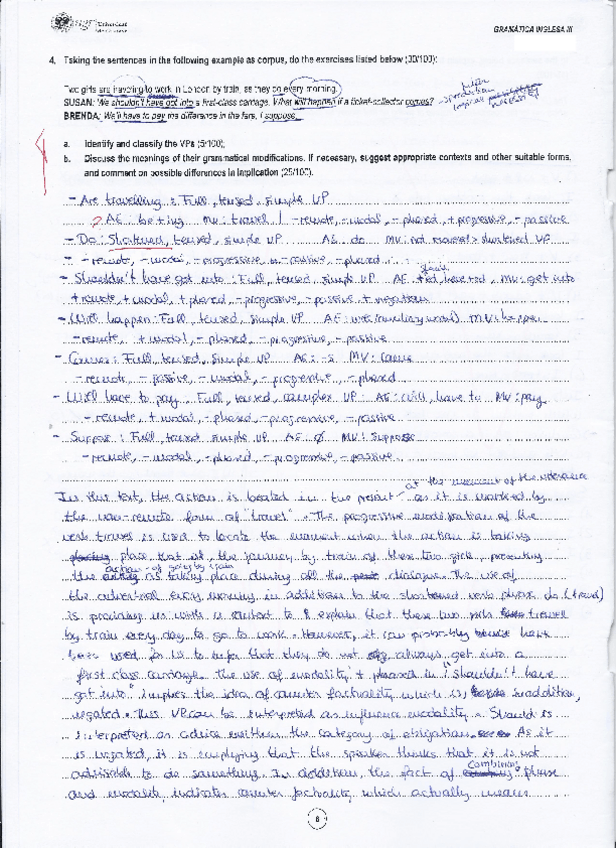 GRAMÁTICA INGLESA III
4. Taking the sentences in the following example as corpus, do the exercises listed below (30/100):
Two girls are traveling to work in London by train, as they do every morning.
SUSAN: We shouldn't have got into a first-class carriage. What will happen if a ticket-collector comes?
BRENDA: We'll have to pay the difference in the fare, I suppose.
a. Identify and classify the VPs (5/100);
b. Discuss the meanings of their grammatical modifications. If necessary, suggest appropriate contexts and other suitable forms,
and comment on possible differences in implication (25/100).
- Are travelling: Full, tensed, simple VP
AE: be + ing MV: travel / - remote, - modal, - phased, + progressive, - passive
- Do: Shortened, tensed, simple VP AE: do MV: not shortened VP
- remote, - modal, - progressive, - passive, - phased
- Shouldn't have got into: Full, tensed, simple VP AE have + ed, MV: get into
+ remote + modal, + phased, - progressive, - passive + negation
- Will happen: Full, tensed, simple VP AE: will (auxiliary) MV: happen
- remote, + modal, - phased, - progressive, - passive
- Comes: Full, tensed, simple VP AE: -s MV: come
- remote, - passive, - modal, - progressive, - phased
- Will have to pay: Full, tensed, complex VP AE: will, have to MV: pay
- remote + modal, - phased, - progressive, - passive
- Suppose: Full tensed simple VP AE Ø MV: Suppose
- remote, - modal, - phased, - progressive, - passive
at the moment of the utterance
In this text, the action is located in the present as it is marked by
the non-remote form of "travel". The progressive modification of the
verb travel is used to locate the moment when the action is taking
place that is, the journey by train of these two girls, presenting
action of going by train
the as taking place during all the dialogue. The use of
the adverbial every morning in addition to the shortened verb phrase do (travel)
is providing us with a context to explain that these two girls travel
by train every day to go to work. However, it can probably have
been used for us to infer that they do not always get into a
first class carriage. The use of modality + phased in "shouldn't have
got into" implies the idea of counter factuality which is in addition,
negated. This VP can be interpreted as inference modality. Should is
interpreted as advice within the category of obligation. As it
is negated, it is employing that the speaker thinks that it is not
advisable to do something. In addition, the fact of combining phase
and modality, indicates counter factuality, which actually means
8